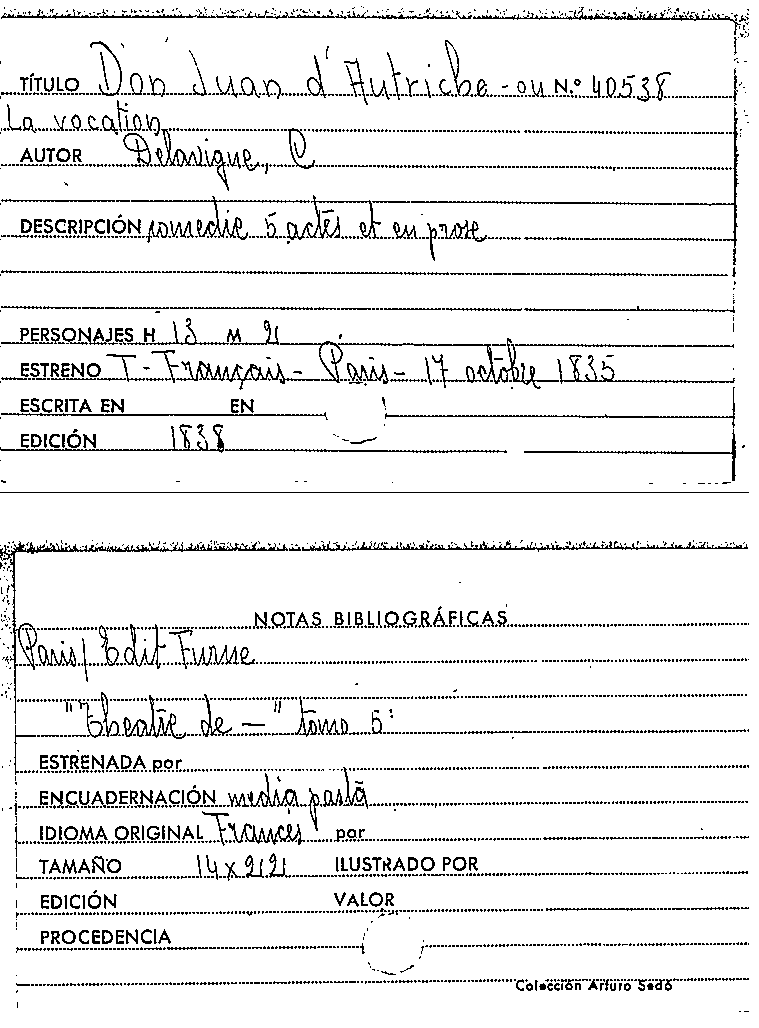 TÍTULO Don Juan d'Autriche - ou N.º 40538
La vocation
AUTOR Delavigne, C
DESCRIPCIÓN comedie 5 actes et en prose
PERSONAJES H 13 M 2
ESTRENO T - Français - Paris - 17 octobre 1835
ESCRITA EN EN
EDICIÓN 1838
NOTAS BIBLIOGRÁFICAS
Paris / Edit Furne
"Theatre de - " tomo 5º
ESTRENADA por
ENCUADERNACIÓN media pasta
IDIOMA ORIGINAL Frances por
TAMAÑO 14 x 22 ILUSTRADO POR
EDICIÓN VALOR
PROCEDENCIA
Colección Arturo Sedó